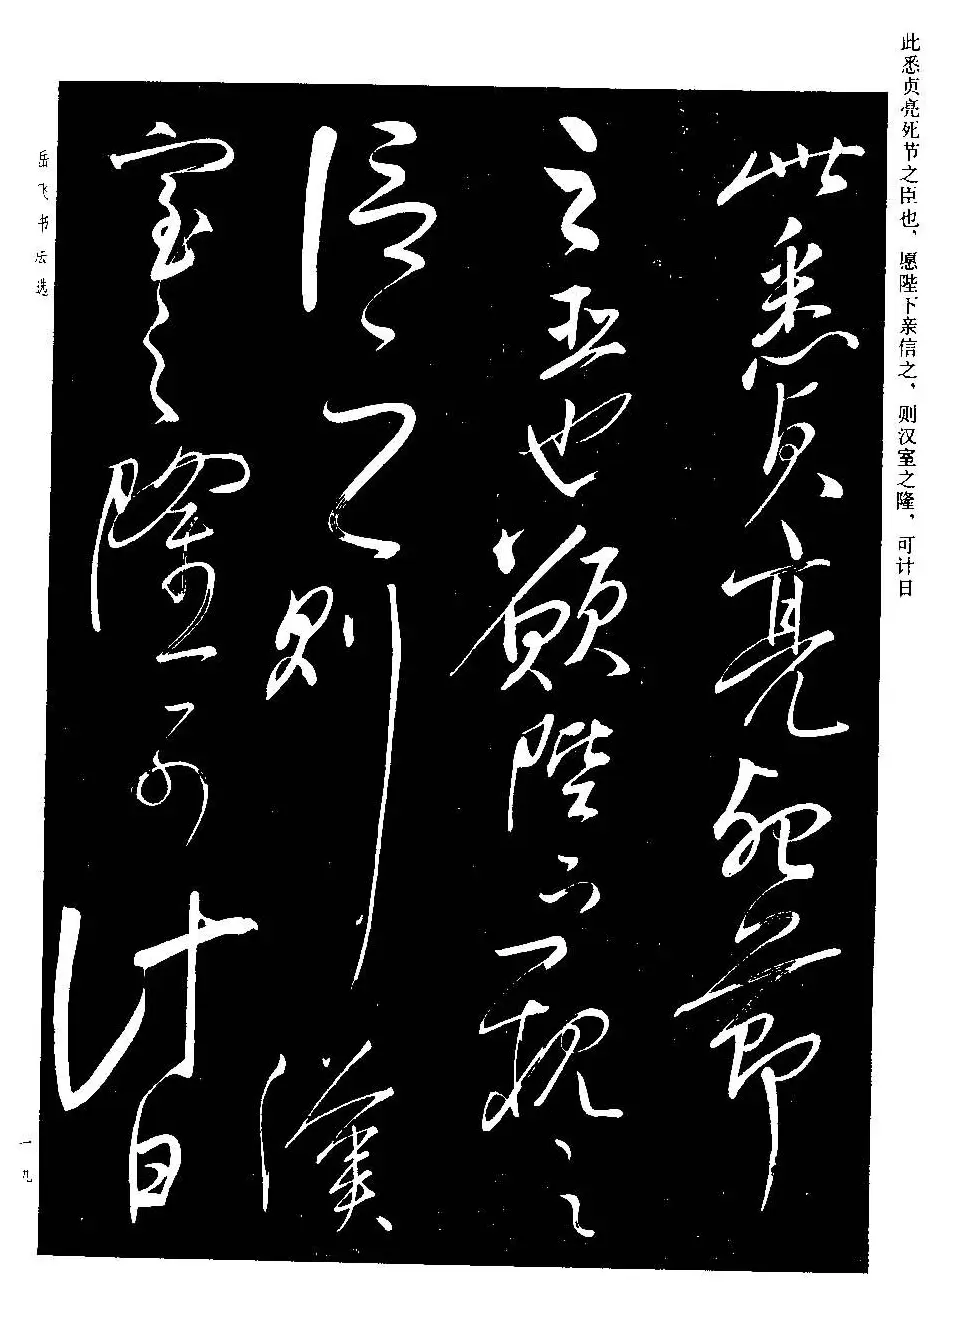 此悉贞亮死节之臣也，愿陛下亲信之，则汉室之隆，可计日
此悉貞亮死節
之臣也願陛下親之
信之則漢
室之隆可計日
岳飞书法选
一九